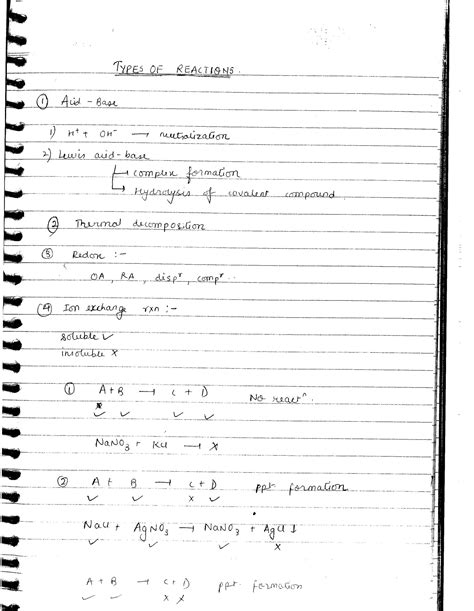 TYPES OF REACTIONS.
① Acid - Base
1) H⁺ + OH⁻ → neutralization
2) Lewis acid - base
↳ complex formation
↳ Hydrolysis of covalent compound
② Thermal decomposition
③ Redox :-
OA, RA, dispʳ, compʳ..
④ Ion exchange rxn :-
soluble ✓
insoluble ✗
① A + B → C + D No reactⁿ.
✓ ✓ ✓ ✓
NaNO₃ + KCl → ✗
② A + B → C + D ppt formation
✓ ✓ ✗ ✓
NaCl + AgNO₃ → NaNO₃ + AgCl ↓
✓ ✓ ✓ ✗
A + B → C + D ppt formation
✓ ✓ ✗ ✗